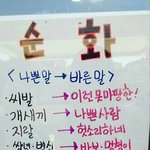 순화
<나쁜말 → 바른말>
· 씨발 → 이런못마땅한!
· 개새끼 → 나쁜사람
· 지랄 → 헛소리하네
· 쌍년·병신 → 바보·멍청이